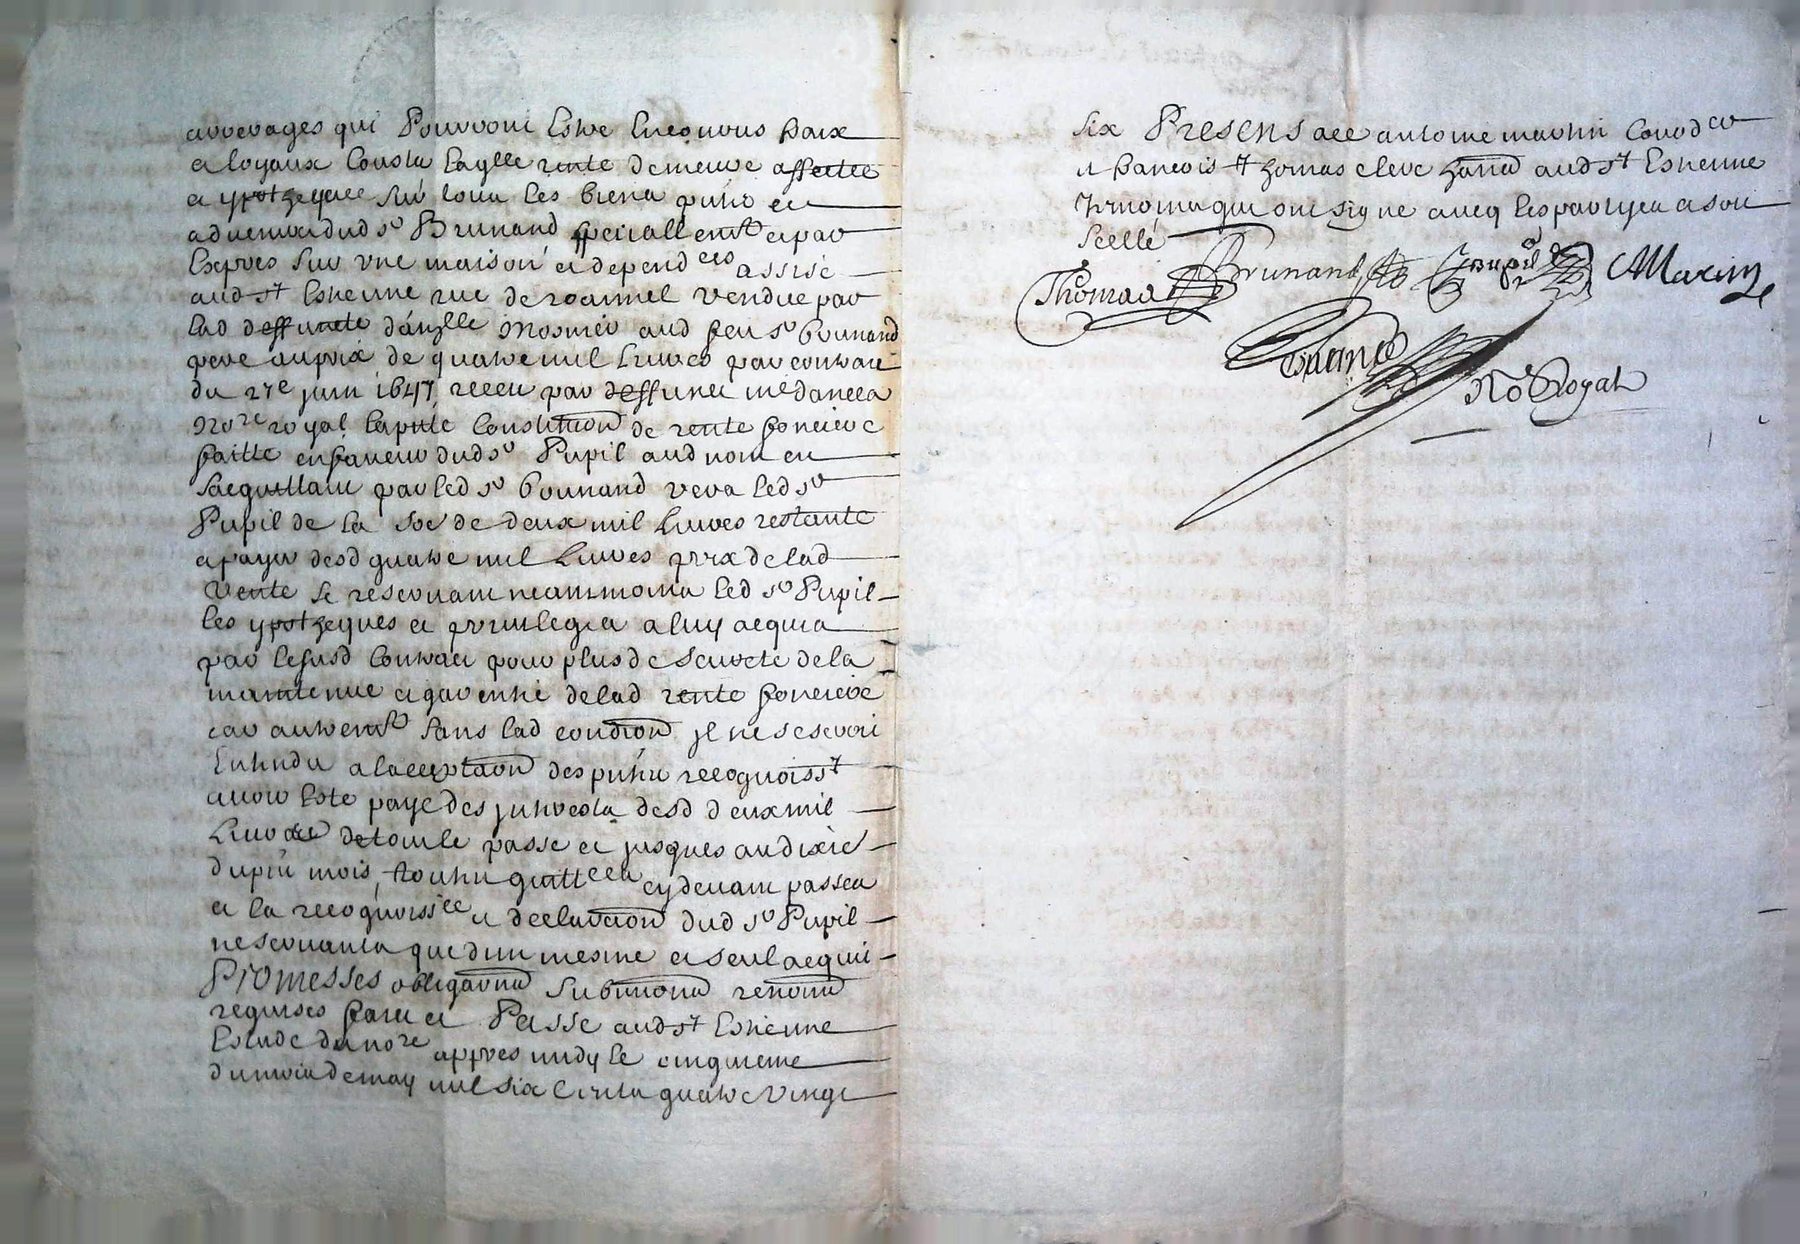 arrerages qui Pourront Estre Encourus fraix
et loyaux Coustz laqlle rente demeure affectée
et ypothequée sur tous les biens pntz et
advenir dud sr Brunand speciallemt et par
Exprès sur une maison et dependces assise
aud st Estienne rue de roannel vendue par
lad deffuncte dauzlle aud feu sr Brunand
pere au prix de quatre mil livres par contract
du 27e juin 1647 receu par deffunct me dances
Nore royal la pnte Constitution de rente fonciere
faitte en faveur dud sr Pupil aud nom en
sacquittant par led sr Brunand vers led sr
Pupil de la soe de deux mil livres restante
a payer desd quatre mil livres prix de lad
Vente se reservant neantmoins led sr Pupil
les ypotheques et privileges a luy acquis
par le susd Contract pour plus de seureté de la
maintenue et garentie de lad rente fonciere
car autremt sans lad condion jl ne se seroit
Entendu a lacceptaon des pntes recognoisst
avoir Esté payé des jnterestz desd deux mil
Livres de tout le passé et jusques au dixie
du pnt mois, toutes quittces cy devant passez
et la recognoissce et declaraon dud sr Pupil
ne servantz que d'un mesme et seul acquit
Promesses obligaons submions renons
requises faict et Passé aud st Estienne
Estude du nore appres midy le cinquieme
du mois de may mil six Centz quatre vingt
six Presens me antoine martin
et francois thomas clerc aud st Estienne
tesmoins qui ont signé avecq les partyes a soit
scellé
Thomas Brunand Pupil AMartin
Nore Royal